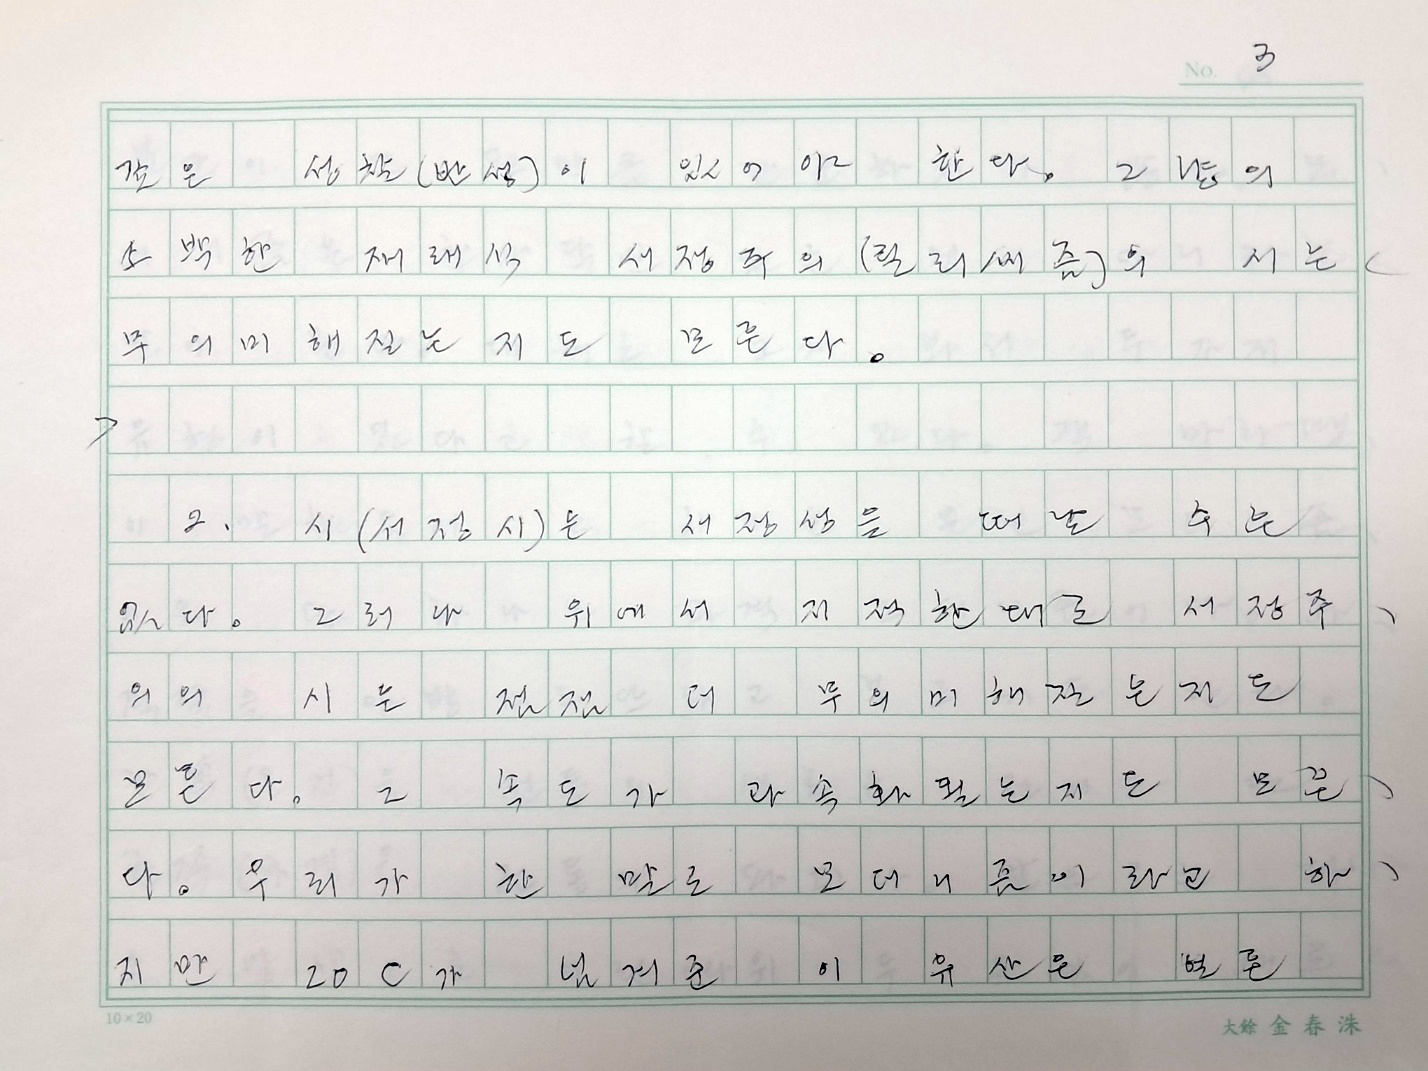 No. 3
같은 성찰(반성)이 있어야 한다. 그냥의
소박한 재래식 서정주의(릴리씨즘)의 시는
무의미해질는지도 모른다.
2. 시(서정시)는 서정성을 떠날 수는
없다. 그러나 위에서 지적한대로 서정주
의의 시는 점점 더 무의미해질는지도
모른다. 그 속도가 과속화될는지도 모른
다. 우리가 한 말로 모더니즘이라고 하
지만 20C가 넘겨준 이 유산은 열른
10×20
大餘 金春洙